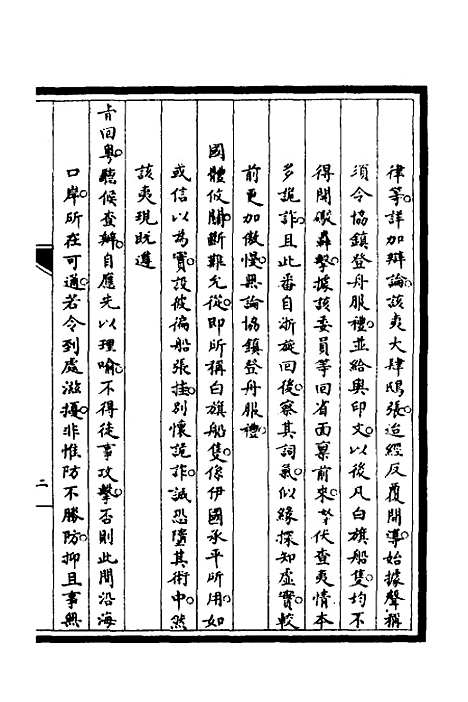 律等。詳加辯論。該夷大肆鴟張。迨經反覆開導。始據聲稱
須令協鎮登舟服禮。並給與印文。以後凡白旗船隻。均不
得開礮轟擊。據該委員等回省面稟前來。奴才伏查夷情本
多詭詐。且此番自浙旋回後。察其詞氣。似緣探知虛實。較
前更加傲慢。無論協鎮登舟服禮。
國體攸關。斷難允從。即所稱白旗船隻。係伊國承平所用。如
或信以為實。設彼徧船張挂。別懷詭詐。誠恐墮其術中。然
該夷現既遵
旨回粵。聽候查辦。自應先以理喻。不得徒事攻擊。否則此間沿海
口岸。所在可通。若令到處滋擾。非惟防不勝防。抑且事無
二